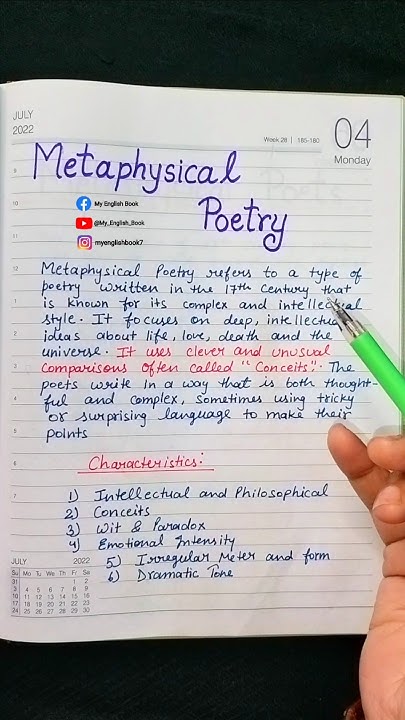 JULY
2022
Week 28 | 185-180
04
Monday
Metaphysical
Poetry
My English Book
@My_English_Book
myenglishbook7
Metaphysical Poetry refers to a type of
poetry written in the 17th century that
is known for its complex and intellectual
style. It focuses on deep, intellectual
ideas about life, love, death and the
universe. It uses clever and unusual
comparisons often called "Conceits". The
poets write in a way that is both thought-
ful and complex, sometimes using tricky
or surprising language to make their
points
Characteristics:
1) Intellectual and Philosophical
2) Conceits
3) Wit & Paradox
4) Emotional Intensity
5) Irregular Meter and form
6) Dramatic Tone
JULY 2022
Su Mo Tu We Th Fr Sa
31 1 2
3 4 5 6 7 8 9
10 11 12 13 14 15 16
17 18 19 20 21 22 23
24 25 26 27 28 29 30